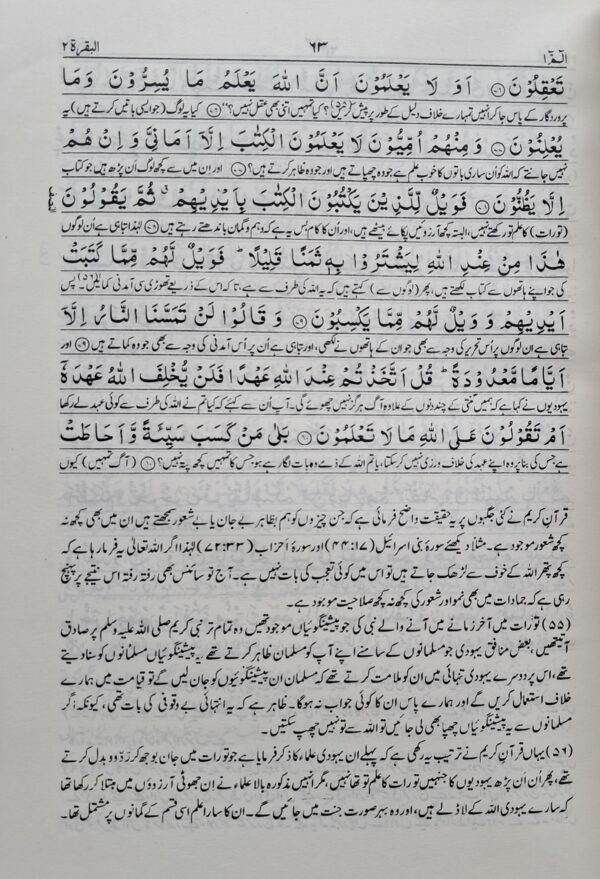 البقرۃ ۲ ۶۳ الٓمّٓ ۱
تَعْقِلُوْنَ ﴿۷۶﴾ اَوَ لَا يَعْلَمُوْنَ اَنَّ اللّٰهَ يَعْلَمُ مَا يُسِرُّوْنَ وَمَا
پروردگار کے پاس جا کر انہیں تمہارے خلاف دلیل کے طور پر پیش کریں؟ کیا تمہیں اتنی بھی عقل نہیں؟" ﴿۷۶﴾ کیا یہ لوگ (جو ایسی باتیں کرتے ہیں) یہ
يُعْلِنُوْنَ ﴿۷۷﴾ وَمِنْهُمْ اُمِّيُّوْنَ لَا يَعْلَمُوْنَ الْكِتٰبَ اِلَّاۤ اَمَانِيَّ وَاِنْ هُمْ
نہیں جانتے کہ اللہ کو ان ساری باتوں کا خوب علم ہے جو وہ چھپاتے ہیں اور جو وہ ظاہر کرتے ہیں؟ ﴿۷۷﴾ اور ان میں سے کچھ لوگ اَن پڑھ ہیں جو کتاب
اِلَّا يَظُنُّوْنَ ﴿۷۸﴾ فَوَيْلٌ لِّلَّذِيْنَ يَكْتُبُوْنَ الْكِتٰبَ بِاَيْدِيْهِمْ ۗ ثُمَّ يَقُوْلُوْنَ
(تورات) کا علم تو رکھتے نہیں، البتہ کچھ آرزوئیں پکائے بیٹھے ہیں، اور ان کا کام بس یہ ہے کہ وہم و گمان باندھتے رہتے ہیں ﴿۷۸﴾ لہٰذا تباہی ہے اُن لوگوں
هٰذَا مِنْ عِنْدِ اللّٰهِ لِيَشْتَرُوْا بِهٖ ثَمَنًا قَلِيْلًا ؕ فَوَيْلٌ لَّهُمْ مِّمَّا كَتَبَتْ
کی جو اپنے ہاتھوں سے کتاب لکھتے ہیں، پھر (لوگوں سے) کہتے ہیں کہ یہ اللہ کی طرف سے ہے، تاکہ اس کے ذریعے تھوڑی سی آمدنی کمالیں۔(۵۶) پس
اَيْدِيْهِمْ وَوَيْلٌ لَّهُمْ مِّمَّا يَكْسِبُوْنَ ﴿۷۹﴾ وَقَالُوْا لَنْ تَمَسَّنَا النَّارُ اِلَّاۤ
تباہی ہے ان لوگوں پر اُس تحریر کی وجہ سے بھی جو ان کے ہاتھوں نے لکھی، اور تباہی ہے اُن پر اُس آمدنی کی وجہ سے بھی جو وہ کماتے ہیں ﴿۷۹﴾ اور
اَيَّامًا مَّعْدُوْدَةً ؕ قُلْ اَتَّخَذْتُمْ عِنْدَ اللّٰهِ عَهْدًا فَلَنْ يُّخْلِفَ اللّٰهُ عَهْدَهٗۤ
یہودیوں نے کہا ہے کہ ہمیں گنتی کے چند دنوں کے علاوہ آگ ہرگز نہیں چھوئے گی۔ آپ ان سے کہئے کہ کیا تم نے اللہ کی طرف سے کوئی عہد لے رکھا
اَمْ تَقُوْلُوْنَ عَلَى اللّٰهِ مَا لَا تَعْلَمُوْنَ ﴿۸۰﴾ بَلٰى مَنْ كَسَبَ سَيِّئَةً وَّاَحَاطَتْ
ہے جس کی بنا پر وہ اپنے عہد کی خلاف ورزی نہیں کرسکتا، یا تم اللہ کے ذمے وہ بات لگا رہے ہو جس کا تمہیں کچھ پتہ نہیں؟ ﴿۸۰﴾ (آگ تمہیں) کیوں
قرآنِ کریم نے کئی جگہوں پر یہ حقیقت واضح فرمائی ہے کہ جن چیزوں کو ہم بظاہر بے جان یا بے شعور سمجھتے ہیں ان میں بھی کچھ نہ
کچھ شعور موجود ہے۔ مثلاً دیکھئے سورۂ بنی اسرائیل (۱۷:۴۴) اور سورۂ احزاب (۳۳:۷۲) لہٰذا اگر اللہ تعالیٰ یہ فرما رہا ہے کہ
کچھ پتھر اللہ کے خوف سے لڑھک جاتے ہیں تو اس میں کوئی تعجب کی بات نہیں ہے۔ آج تو سائنس بھی رفتہ رفتہ اس نتیجے پر پہنچ
رہی ہے کہ جمادات میں بھی نمو اور شعور کی کچھ نہ کچھ صلاحیت موجود ہے۔
(۵۵) تورات میں آخر زمانے میں آنے والے نبی کی جو پیشینگوئیاں موجود تھیں وہ تمام تر نبی کریم صلی اللہ علیہ وسلم پر صادق
آتی تھیں، بعض منافق یہودی جو مسلمانوں کے سامنے اپنے آپ کو مسلمان ظاہر کرتے تھے یہ پیشینگوئیاں مسلمانوں کو سنا دیتے
تھے، اس پر دوسرے یہودی تنہائی میں ان کو ملامت کرتے تھے کہ مسلمان ان پیشینگوئیوں کو جان لیں گے تو قیامت میں ہمارے
خلاف استعمال کریں گے اور ہمارے پاس ان کا کوئی جواب نہ ہوگا۔ ظاہر ہے کہ یہ انتہائی بے وقوفی کی بات تھی، کیونکہ اگر
مسلمانوں سے یہ پیشینگوئیاں چھپا بھی لی جائیں تو اللہ سے تو نہیں چھپ سکتیں۔
(۵۶) یہاں قرآنِ کریم نے ترتیب یہ رکھی ہے کہ پہلے ان یہودی علماء کا ذکر فرمایا ہے جو تورات میں جان بوجھ کر ردّ و بدل کرتے
تھے، پھر اُن اَن پڑھ یہودیوں کا جنہیں تورات کا علم تو تھا نہیں، مگر انہیں مذکورہ بالا علماء نے اِن جھوٹی آرزوؤں میں مبتلا کر رکھا تھا
کہ سارے یہودی اللہ کے لاڈلے ہیں، اور وہ بہر صورت جنت میں جائیں گے۔ ان کا سارا علم اسی قسم کے گمانوں پر مشتمل تھا۔